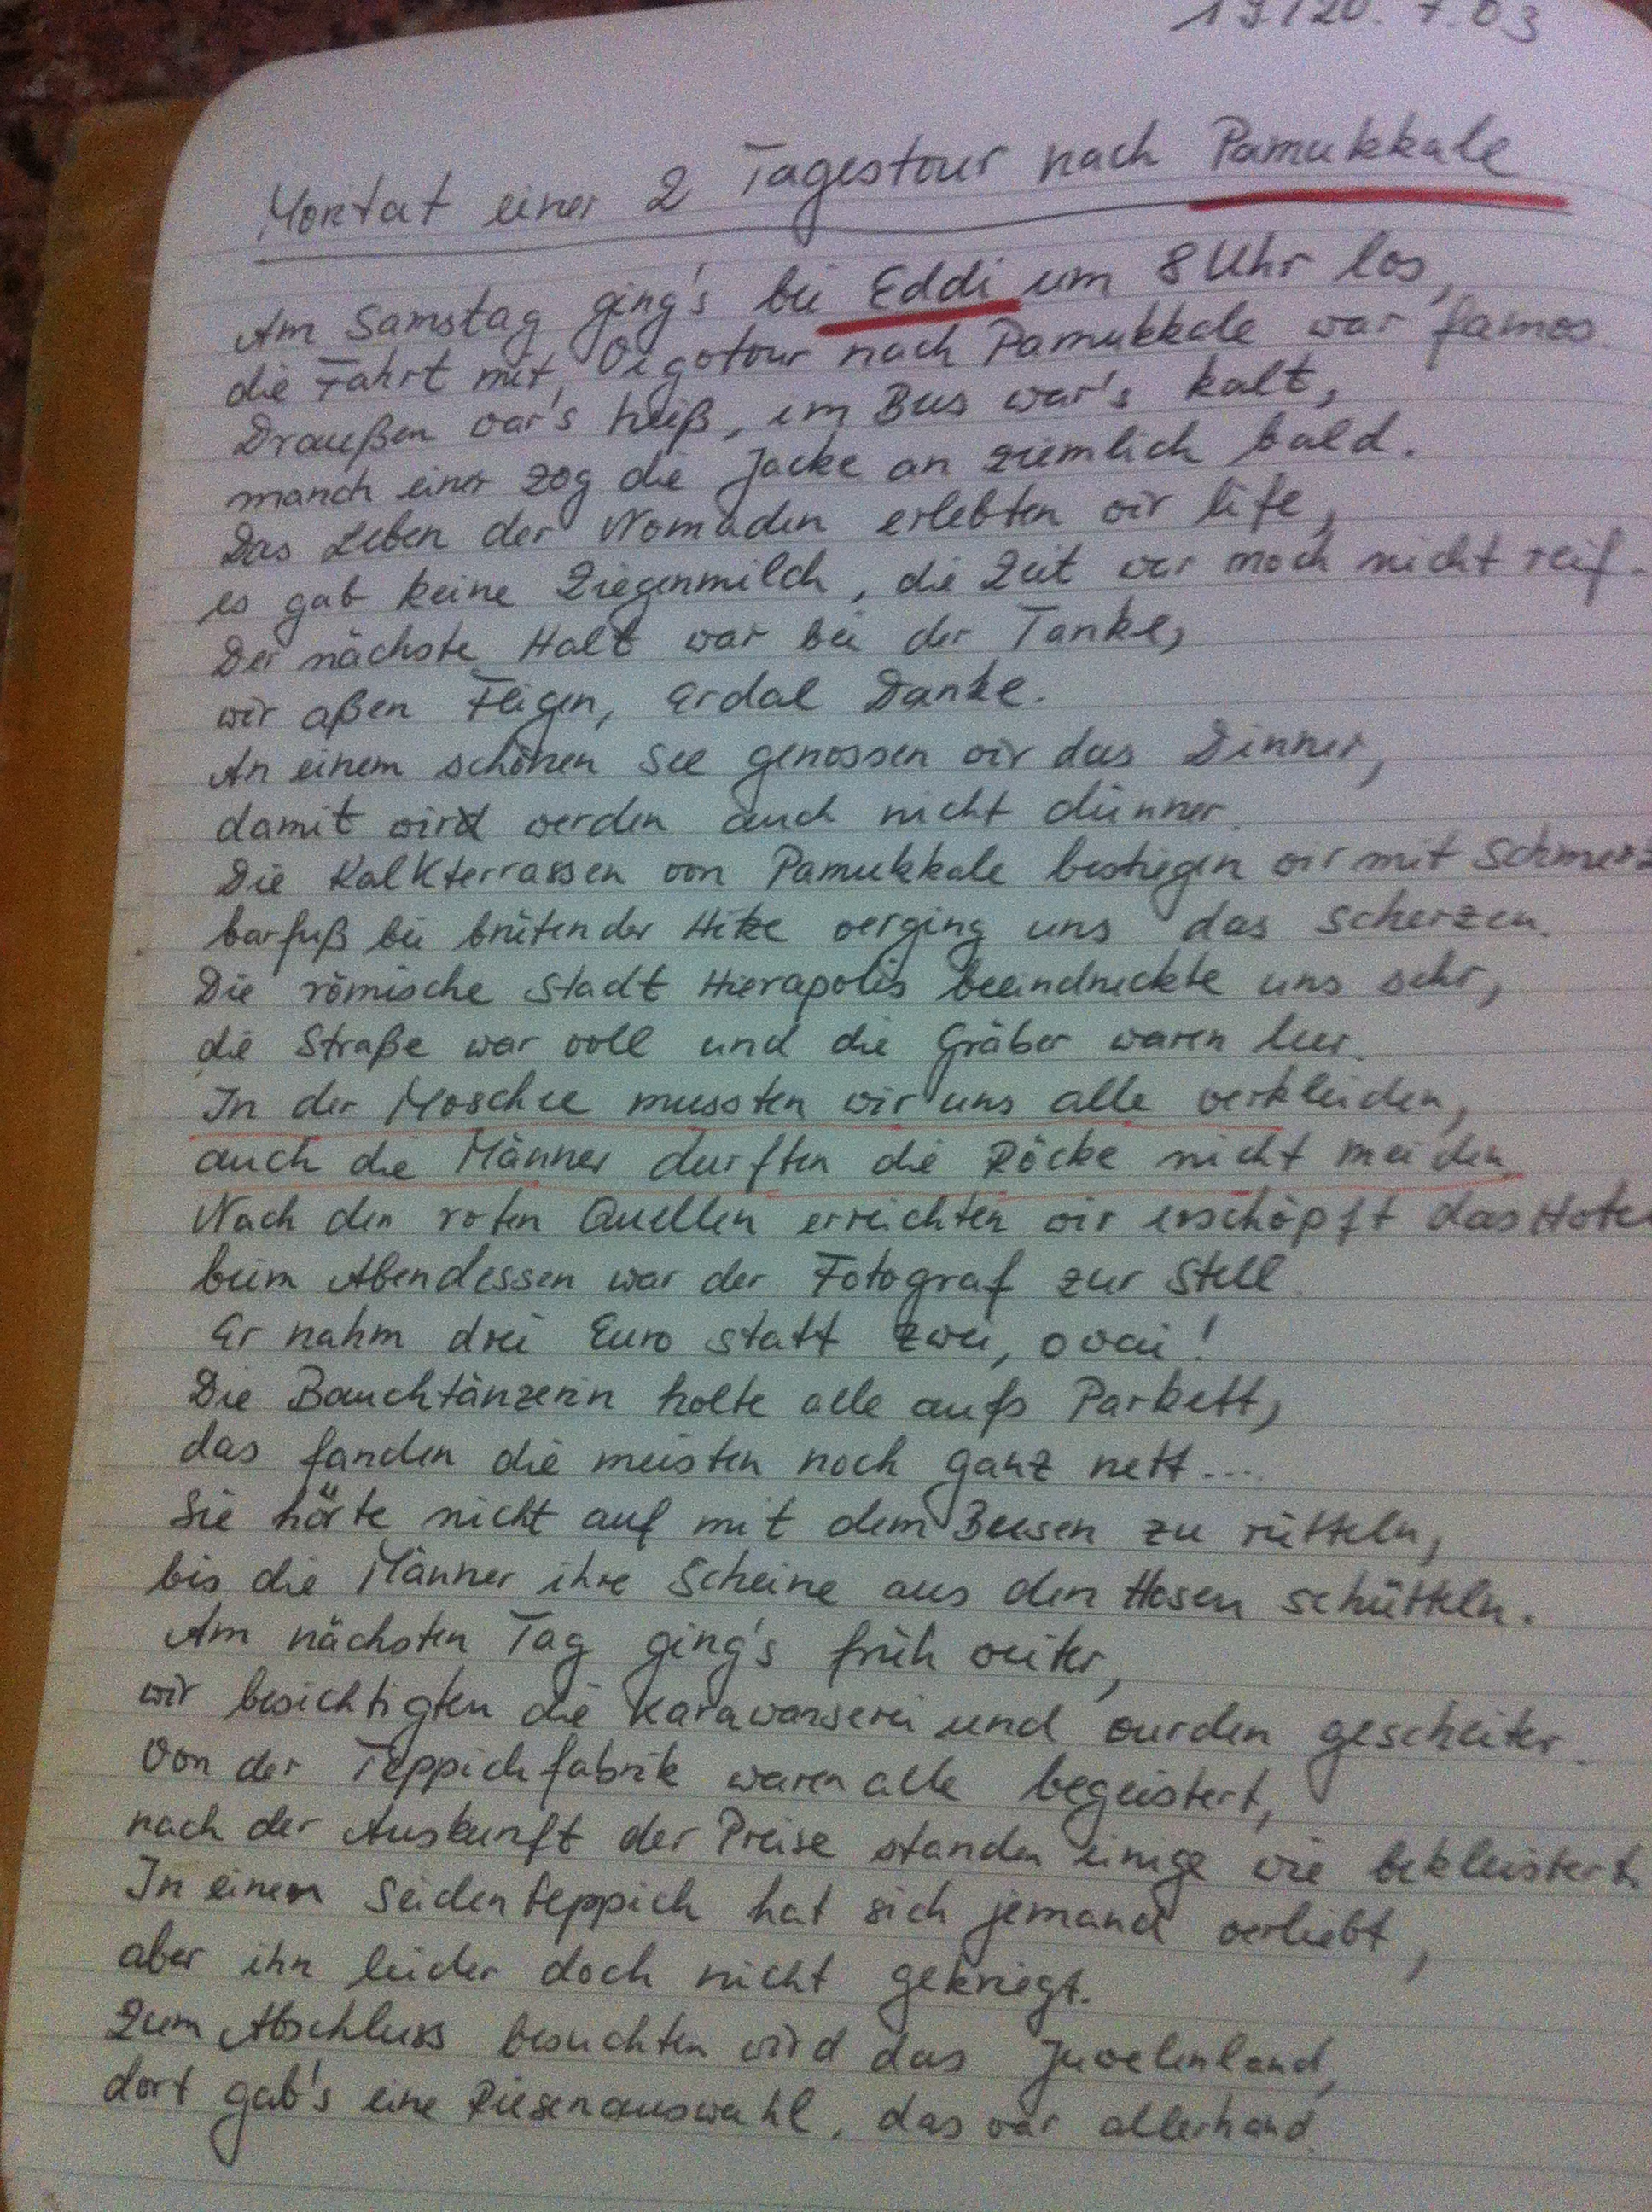 19./20. 7. 03
Moritat einer 2 Tagestour nach Pamukkale
Am Samstag ging's bei Eddi um 8 Uhr los,
die Fahrt mit Vigotour nach Pamukkale war famos.
Draußen war's heiß, im Bus war's kalt,
manch einer zog die Jacke an ziemlich bald.
Das Leben der Nomaden erlebten wir life,
es gab keine Ziegenmilch, die Zeit war noch nicht reif.
Der nächste Halt war bei der Tanke,
wir aßen Feigen, Erdal Danke.
An einem schönen See genossen wir das Dinner,
damit wird werden auch nicht dünner.
Die Kalkterrassen von Pamukkale bestiegen wir mit Schmerz
barfuß bei brütender Hitze verging uns das Scherzen.
Die römische Stadt Hierapolis beeindruckte uns sehr,
die Straße war voll und die Gräber waren leer.
In der Moschee mussten wir uns alle verkleiden,
auch die Männer durften die Röcke nicht meiden.
Nach den roten Quellen erreichten wir erschöpft das Hote
beim Abendessen war der Fotograf zur Stell.
Er nahm drei Euro statt zwei, owei!
Die Bauchtänzerin holte alle aufs Parkett,
das fanden die meisten noch ganz nett....
Sie hörte nicht auf mit dem Busen zu rütteln,
bis die Männer ihre Scheine aus den Hosen schütteln.
Am nächsten Tag ging's früh weiter,
wir besichtigten die Karawanserei und wurden gescheiter.
Von der Teppichfabrik waren alle begeistert,
nach der Auskunft der Preise standen einige wie bekleistert.
In einen Seidenteppich hat sich jemand verliebt,
aber ihn leider doch nicht gekriegt.
Zum Abschluss besuchten wird das Juwelenland,
dort gab's eine Riesenauswahl, das war allerhand.